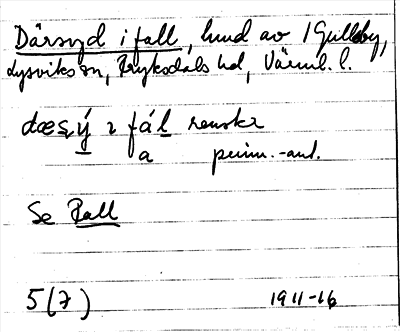 Därsyd i fall, hmd av / Gullsby,
Lysviks sn, Fryksdals hd, Värml. l.
dæsý ı fál renskr
a prim.-ant.
Se Fall
5(7) 1911-16